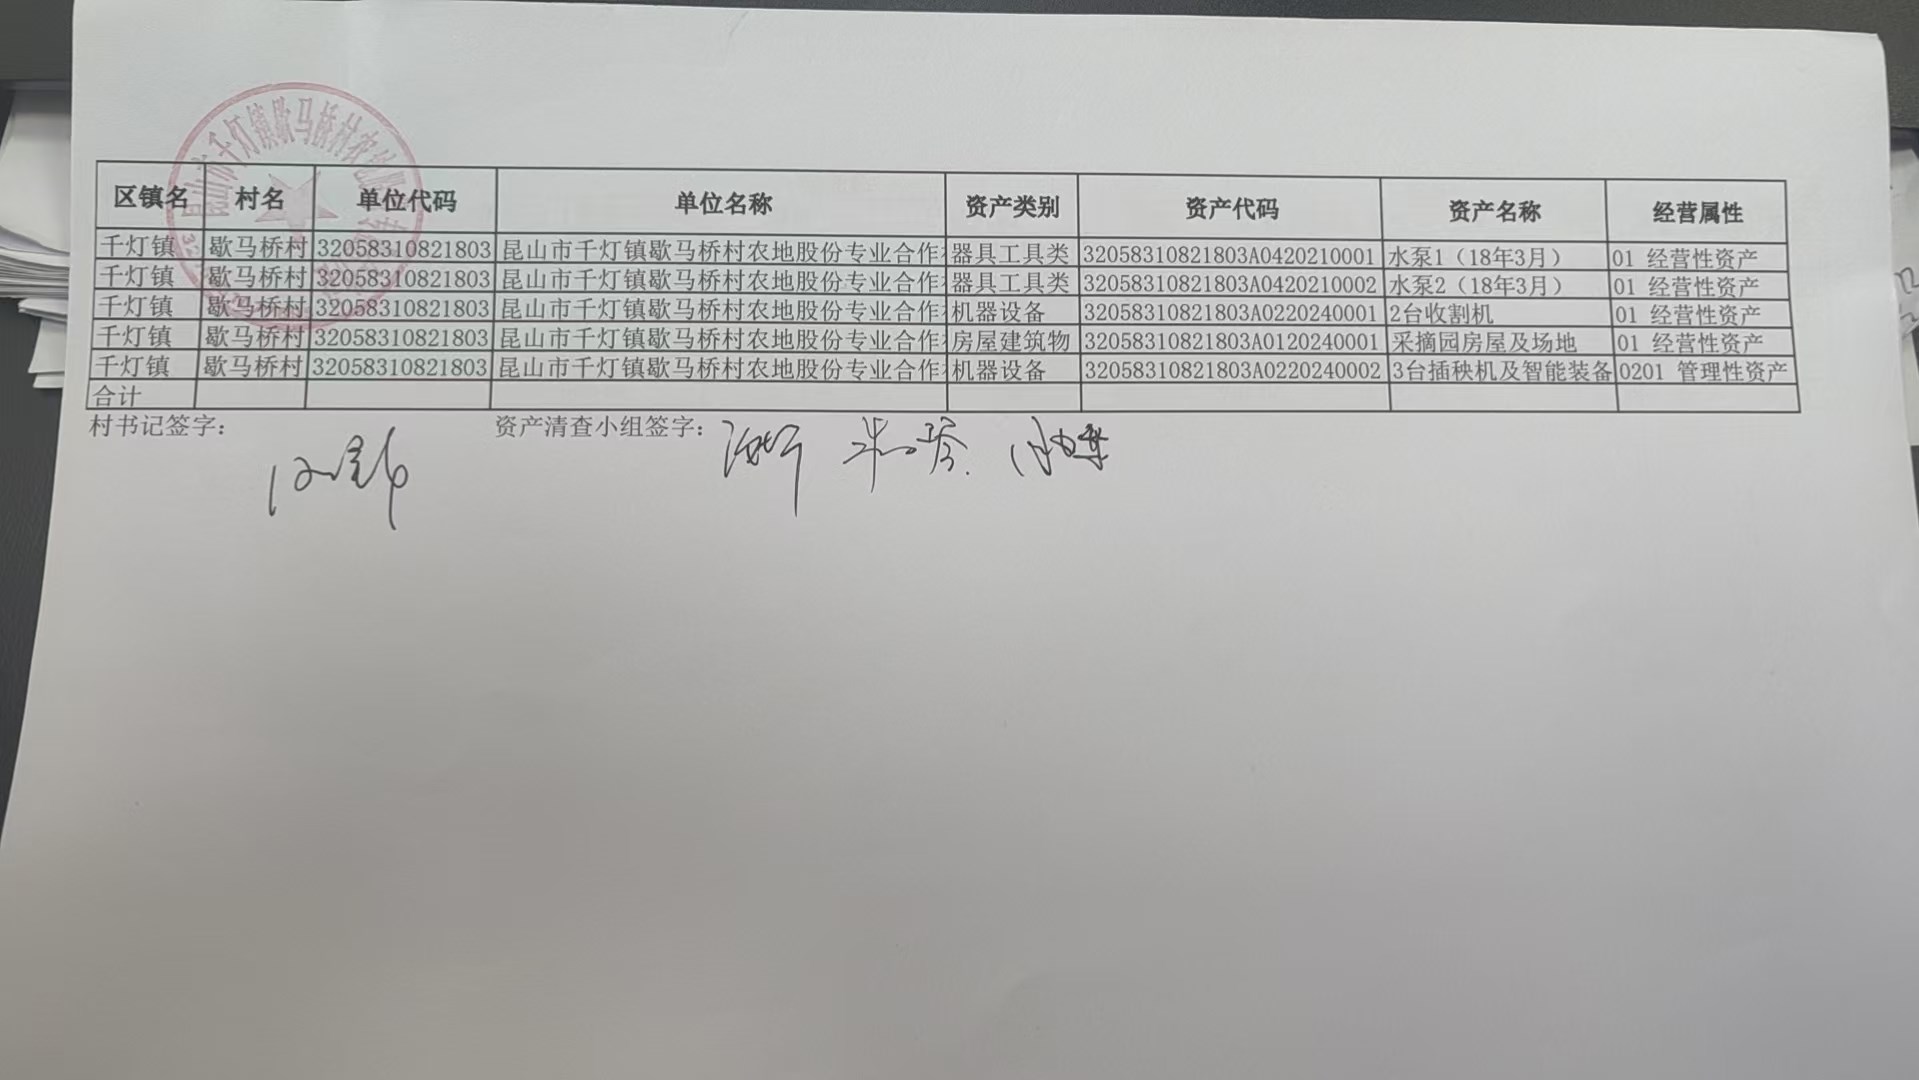 昆山市千灯镇歇马桥村农地股
区镇名 村名 单位代码 单位名称 资产类别 资产代码 资产名称 经营属性
千灯镇 歇马桥村 32058310821803 昆山市千灯镇歇马桥村农地股份专业合作 器具工具类 32058310821803A0420210001 水泵1（18年3月） 01 经营性资产
千灯镇 歇马桥村 32058310821803 昆山市千灯镇歇马桥村农地股份专业合作 器具工具类 32058310821803A0420210002 水泵2（18年3月） 01 经营性资产
千灯镇 歇马桥村 32058310821803 昆山市千灯镇歇马桥村农地股份专业合作 机器设备 32058310821803A0220240001 2台收割机 01 经营性资产
千灯镇 歇马桥村 32058310821803 昆山市千灯镇歇马桥村农地股份专业合作 房屋建筑物 32058310821803A0120240001 采摘园房屋及场地 01 经营性资产
千灯镇 歇马桥村 32058310821803 昆山市千灯镇歇马桥村农地股份专业合作 机器设备 32058310821803A0220240002 3台插秧机及智能装备 0201 管理性资产
合计
村书记签字： 资产清查小组签字：